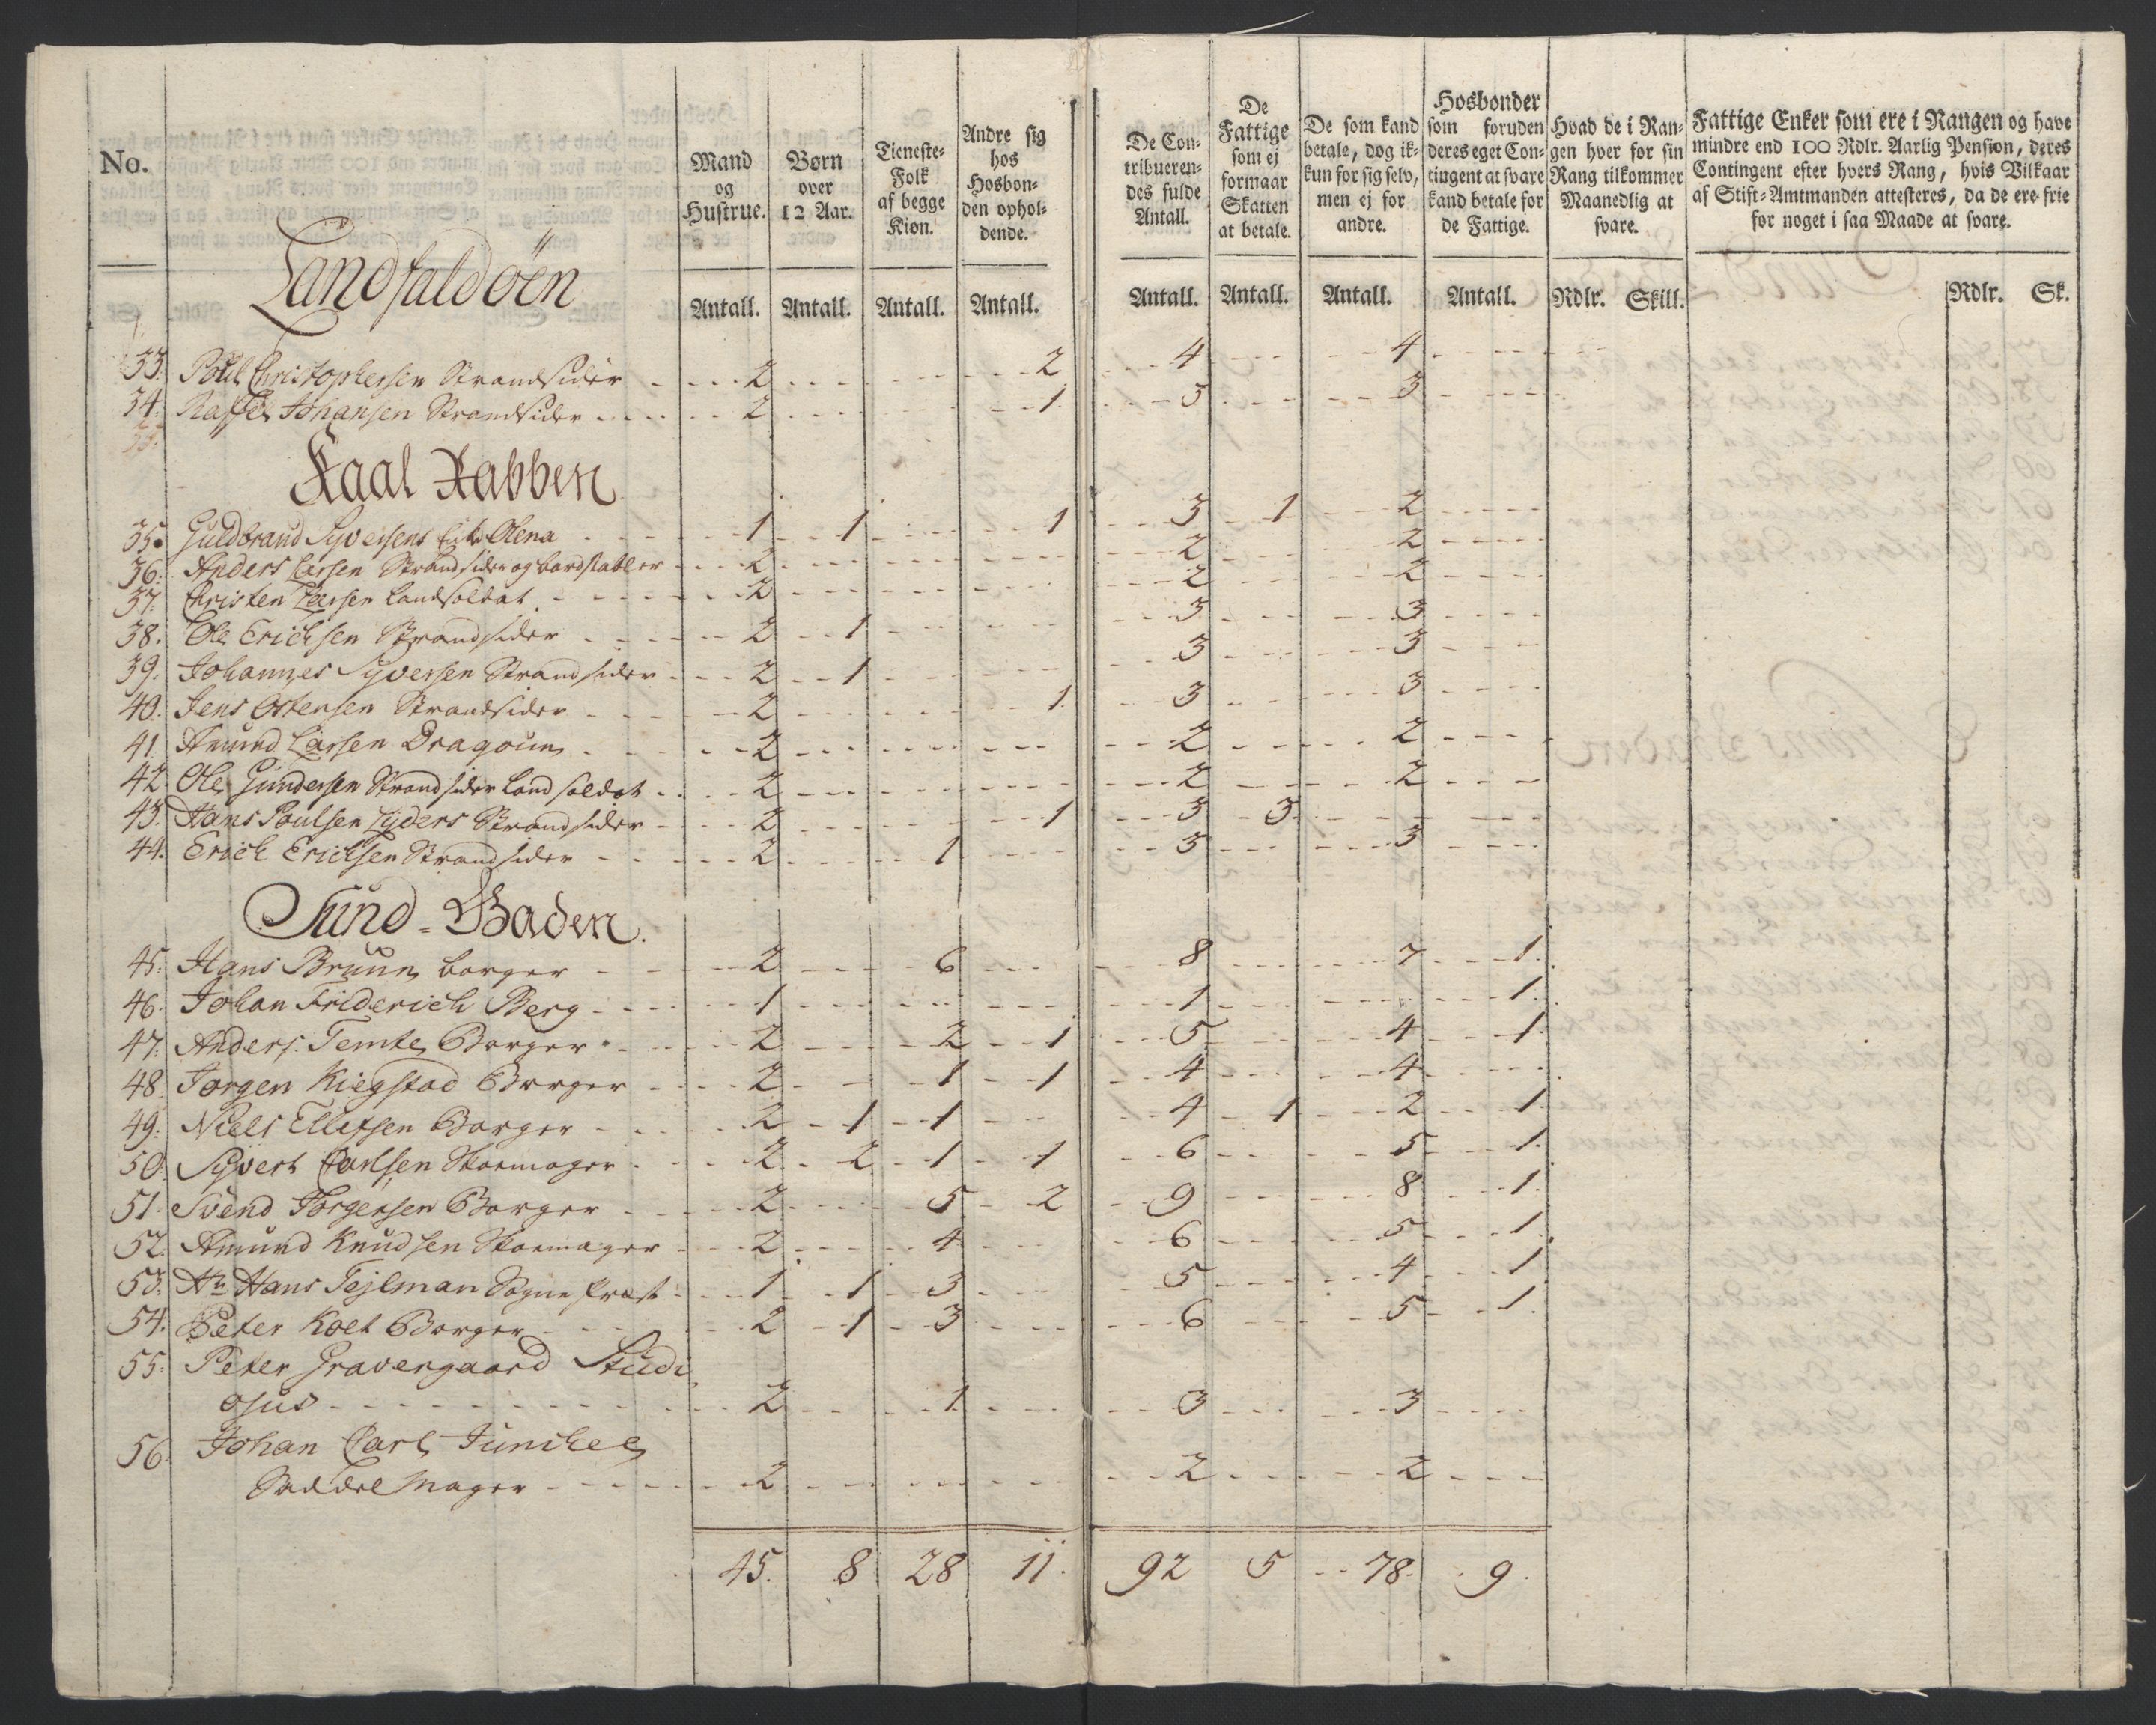 No.
Mand og Hustrue.
Børn over 12 Aar.
Tieneste-Folk af begge Kiøn.
Andre sig hos Hosbonden opholdende.
De Contribuerendes fulde Antall.
De Fattige som ej formaar Skatten at betale.
De som kand betale, dog ikkun for sig selv, men ej for andre.
Hosbonder som foruden deres eget Contingent at svare kand betale for de Fattige.
Hvad de i Rangen hver for sin Rang tilkommer Maanedlig at svare.
Fattige Enker som ere i Rangen og have mindre end 100 Rdlr. Aarlig Pension, deres Contingent efter hvers Rang, hvis Vilkaar af Stift-Amtmanden attesteres, da de ere frie for noget i saa Maade at svare.
Antall. Antall. Antall. Antall. Antall. Antall. Antall. Antall. Rdlr. Skill. Rdlr. Sk.
Landfaldøen
33. Poul Christophersen Strandsider 2 2 4 4
34. Raffel Johansen Strandsider 2 1 3 3
Kaal Rabben
35. Guldbrand Syversens Enke Olena 1 1 1 3 1 2
36. Anders Larsen Strandsider og bordstabler 2 2 2
37. Christen Larsen Landsoldat 2 2 2
38. Ole Erichsen Strandsider 2 1 3 3
39. Johannes Syversen Strandsider 2 1 3 3
40. Jens Ostensen Strandsider 2 1 3 3
41. Amund Larsen Dragoun 2 2 2
42. Ole Gundersen Strandsider Land soldat 2 2 2
43. Hans Poulsen Lyders Strandsider 2 1 3 3
44. Erich Erichsen Strandsider 2 1 3 3
Sund-Baden.
45. Hans Bruun borger 2 6 8 7 1
46. Johan Friderich Berg 1 1 1
47. Anders Temte Borger 2 2 1 5 4 1
48. Jørgen Kiegstad Borger 2 1 1 4 4
49. Niels Ellefsen Borger 2 1 1 4 1 2 1
50. Syvert Carlsen Skoemager 2 2 1 1 6 5 1
51. Svend Torgersen Borger 2 5 2 9 8 1
52. Amund Knudsen Skoemager 2 4 6 5 1
53. Hr Hans Tejlman Sogne Præst 1 1 3 5 4 1
54. Peter Koet Borger 2 1 3 6 5 1
55. Peter Gravengaard Studi
osus 2 1 3 3
56. Johan Carl Junchel
Saddelmager 2 2 2
45. 8 28 11. 92 5 78. 9.